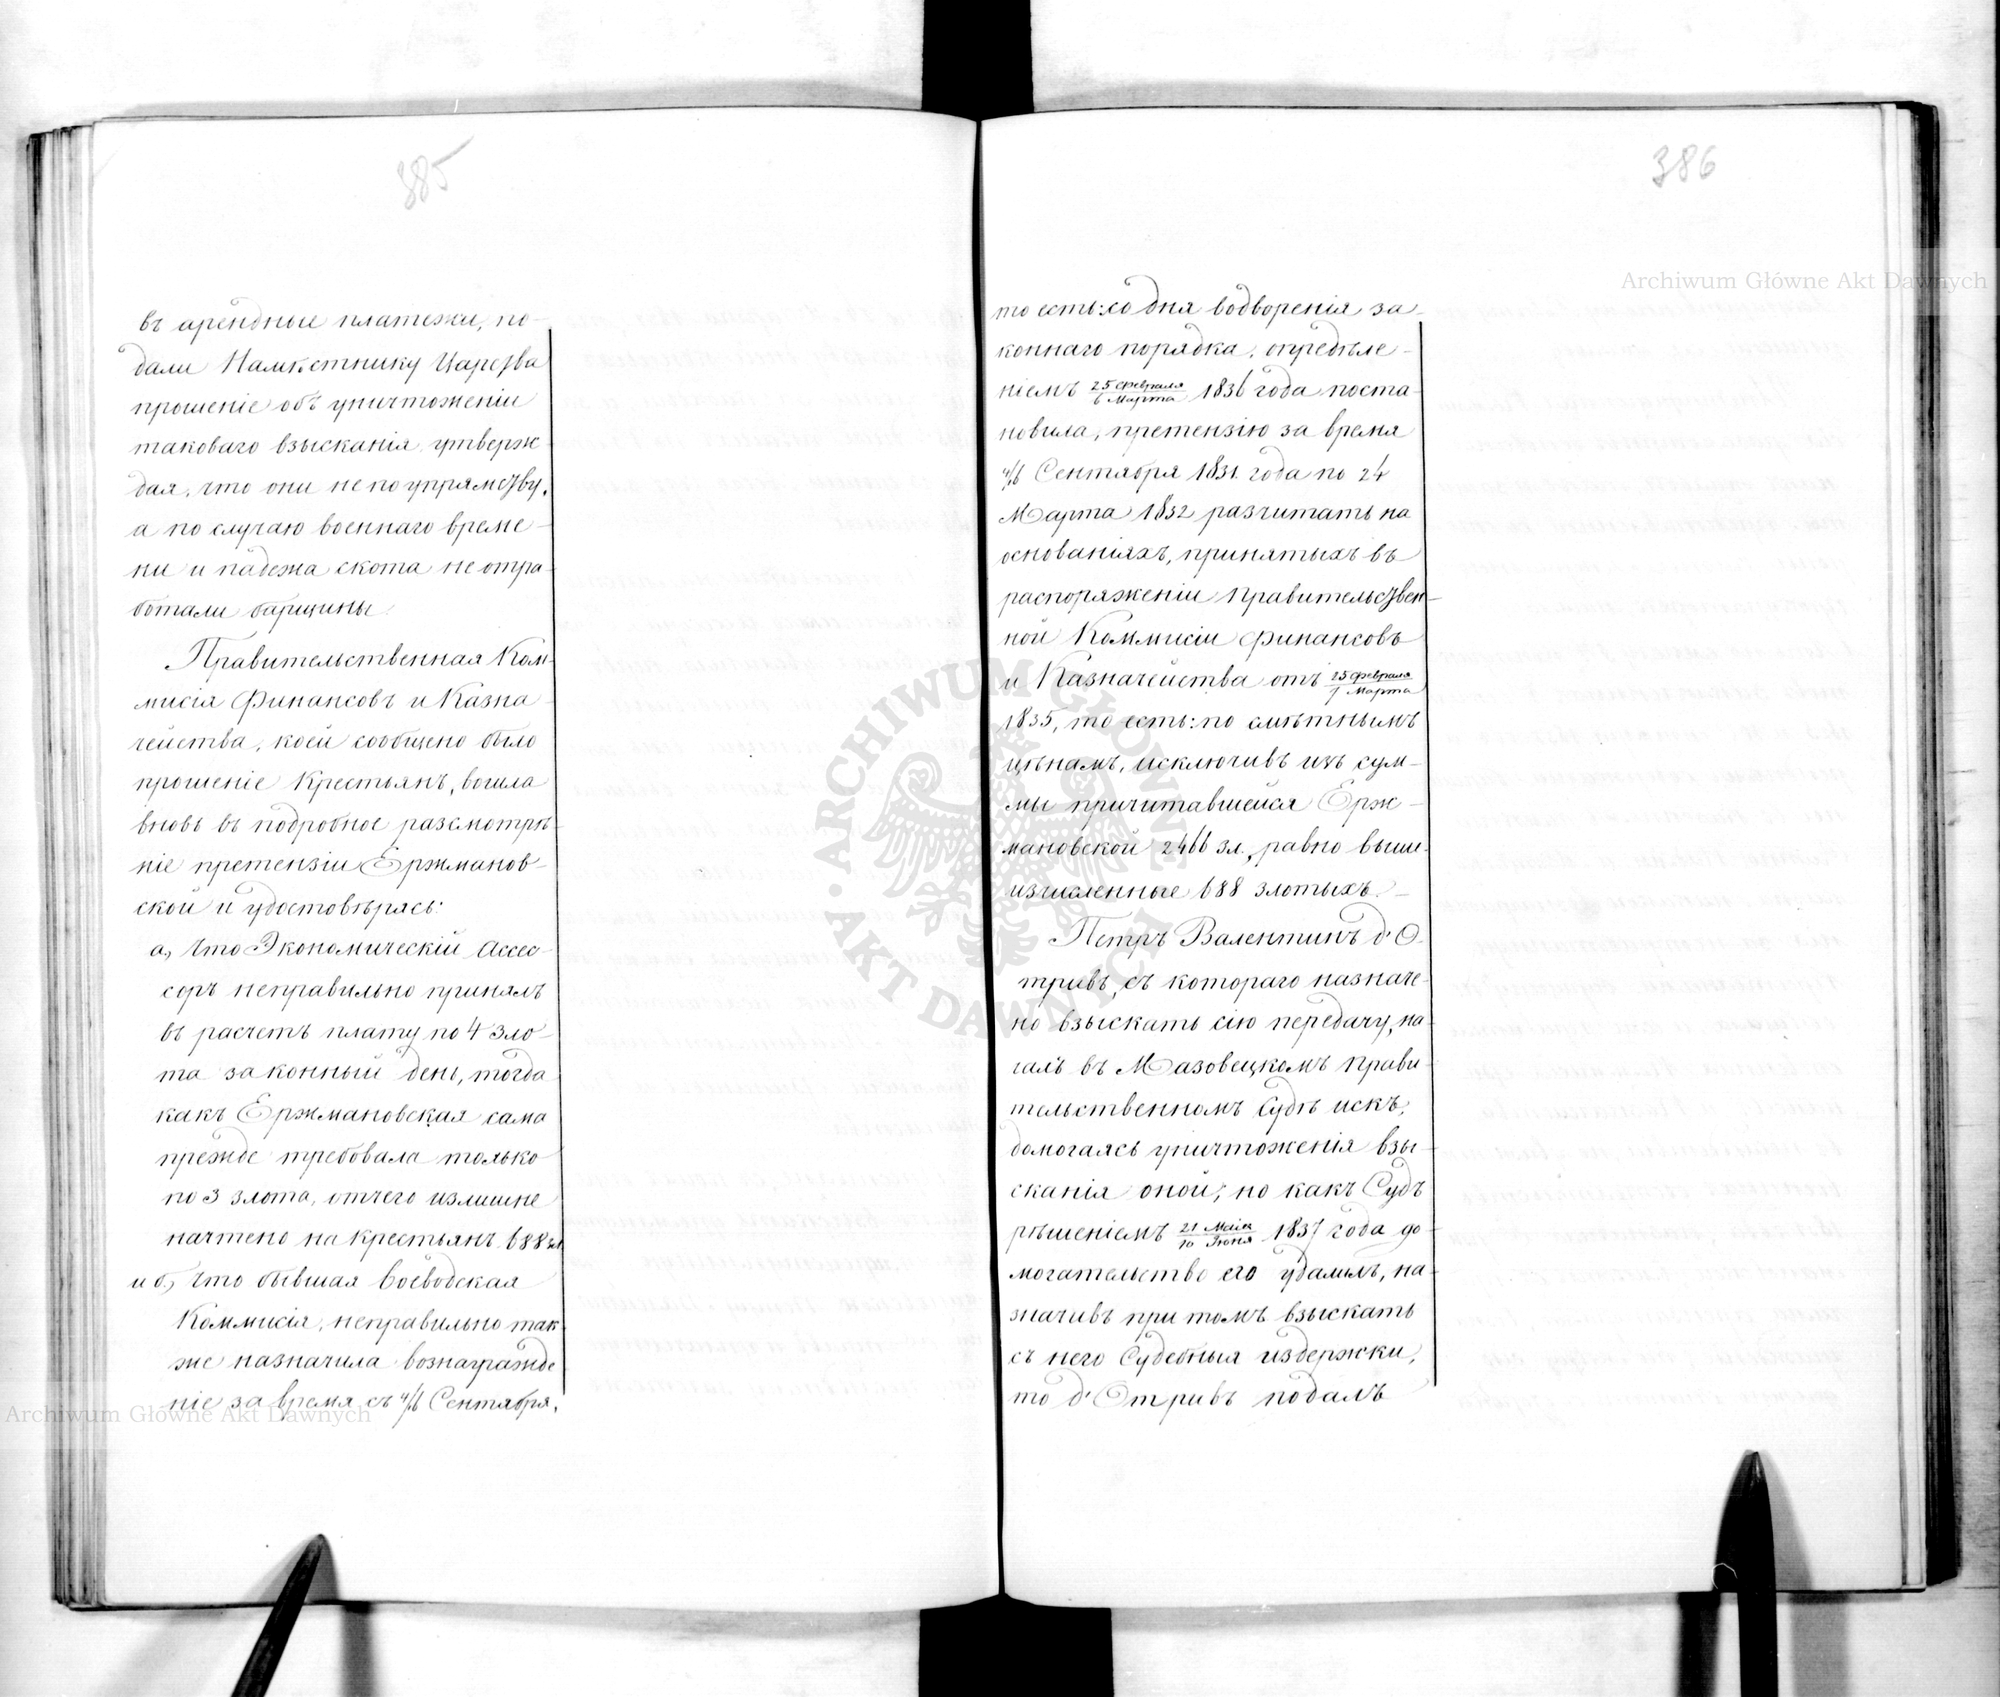 385
въ арендные платежи, по-
дали Намѣстнику Царства
прошеніе объ уничтоженіи
таковаго взысканія утверж-
дая, что они не по упрямству,
а по случаю военнаго време-
ни и падежа скота не отра-
ботали барщины.
Правительственная Ком-
мисія Финансовъ и Казна-
чейства, коей сообщено было
прошеніе Крестьянъ, вошла
вновь въ подробное разсмотрѣ-
ніе претензіи Ержманов-
ской и удостовѣрясь:
а, Что Экономическій Ассес-
соръ неправильно принялъ
въ расчетъ плату по 4 зло-
та за конный день, тогда
какъ Ержмановская сама
прежде требовала только
по 3 злота, отчего излишне
начтено на крестьянъ 688 зл.
и б, Что бывшая Воеводская
Коммисія, неправильно так-
же назначила вознагражде-
ніе за время съ 4/16 Сентября,
386
то есть: со дня водворенія за-
коннаго порядка, опредѣле-
ніемъ 25 Февраля/6 Марта 1836 года поста-
новила, претензію за время
4/16 Сентября 1831 года по 24
Марта 1832 разчитать на
основаніяхъ, принятыхъ въ
распоряженіи Правительствен-
ной Коммисіи Финансовъ
и Казначейства отъ 25 Февраля/7 Марта
1835, то есть: по смѣтнымъ
цѣнамъ, исключивъ изъ сум-
мы причитавшейся Ерж-
мановской 2466 зл., равно выше-
изчисленные 688 злотыхъ.
Петръ Валентинъ д'О-
тривъ, съ котораго назначе-
но взыскать сію передачу, на-
чалъ въ Мазовецкомъ Прави-
тельственномъ Судѣ искъ,
домогаясь уничтоженія взы-
сканія оной; но какъ Судъ
рѣшеніемъ 21 Маія/10 Іюня 1837 года до-
могательство его удалилъ, на-
значивъ при томъ взыскать
съ него Судебныя издержки,
то д'Отривъ подалъ
Archiwum Główne Akt Dawnych
Archiwum Główne Akt Dawnych
ARCHIWUM GŁÓWNE AKT DAWNYCH